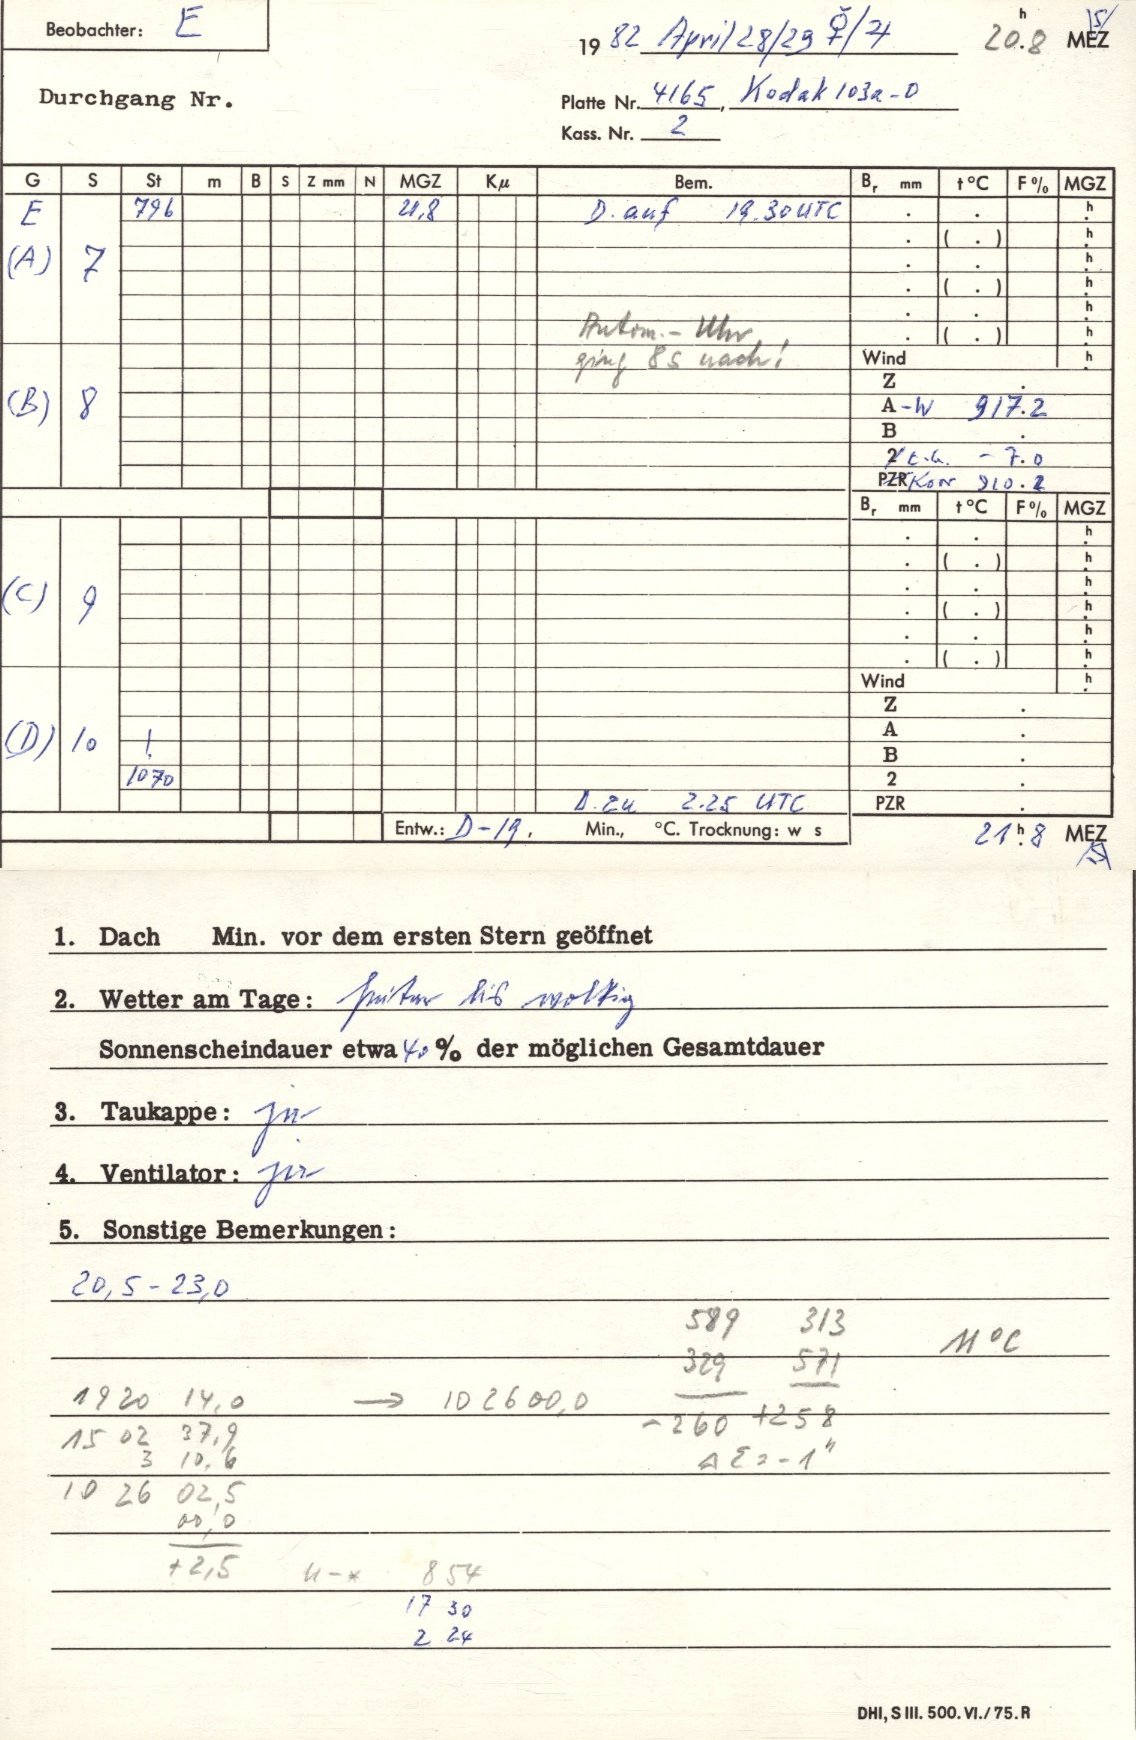 Beobachter: E
1982 April 28/29 ☿/♃ 20.8 h MEZ
Durchgang Nr.
Platte Nr. 4165, Kodak 103a-O
Kass. Nr. 2
G S St m B S Z mm N MGZ Kµ Bem. Br mm t°C F% MGZ
E 796 21,8 D. auf 19.30 UTC . . h
. ( . ) h
(A) 7 . . h
. ( . ) h
. . h
Autom.- Uhr . ( . ) h
ging 8s nach! Wind h
Z .
(B) 8 A-W 917.2
B .
2 t.k. - 7.0
PZR Korr 910.2
Br mm t°C F% MGZ
. . h
. ( . ) h
. . h
(C) 9 . ( . ) h
. . h
. ( . ) h
Wind h
Z .
A .
(D) 10 ! B .
1070 2 .
D. zu 2.25 UTC PZR .
Entw.: D-19, Min., °C. Trocknung: w s
21 h.8 MEZ
1. Dach Min. vor dem ersten Stern geöffnet
2. Wetter am Tage: heiter bis wolkig
Sonnenscheindauer etwa 40% der möglichen Gesamtdauer
3. Taukappe: ja
4. Ventilator: ja
5. Sonstige Bemerkungen:
20,5 - 23,0
589 313
329 571 11 °C
1920 14,0 → 10 26 00,0
-260 +258
15 02 37,9
3 10,6 ΔΣ = -1"
10 26 02,5
00,0
+2,5 U-* 854
17 30
2 24
DHI, S III. 500. VI./75. R